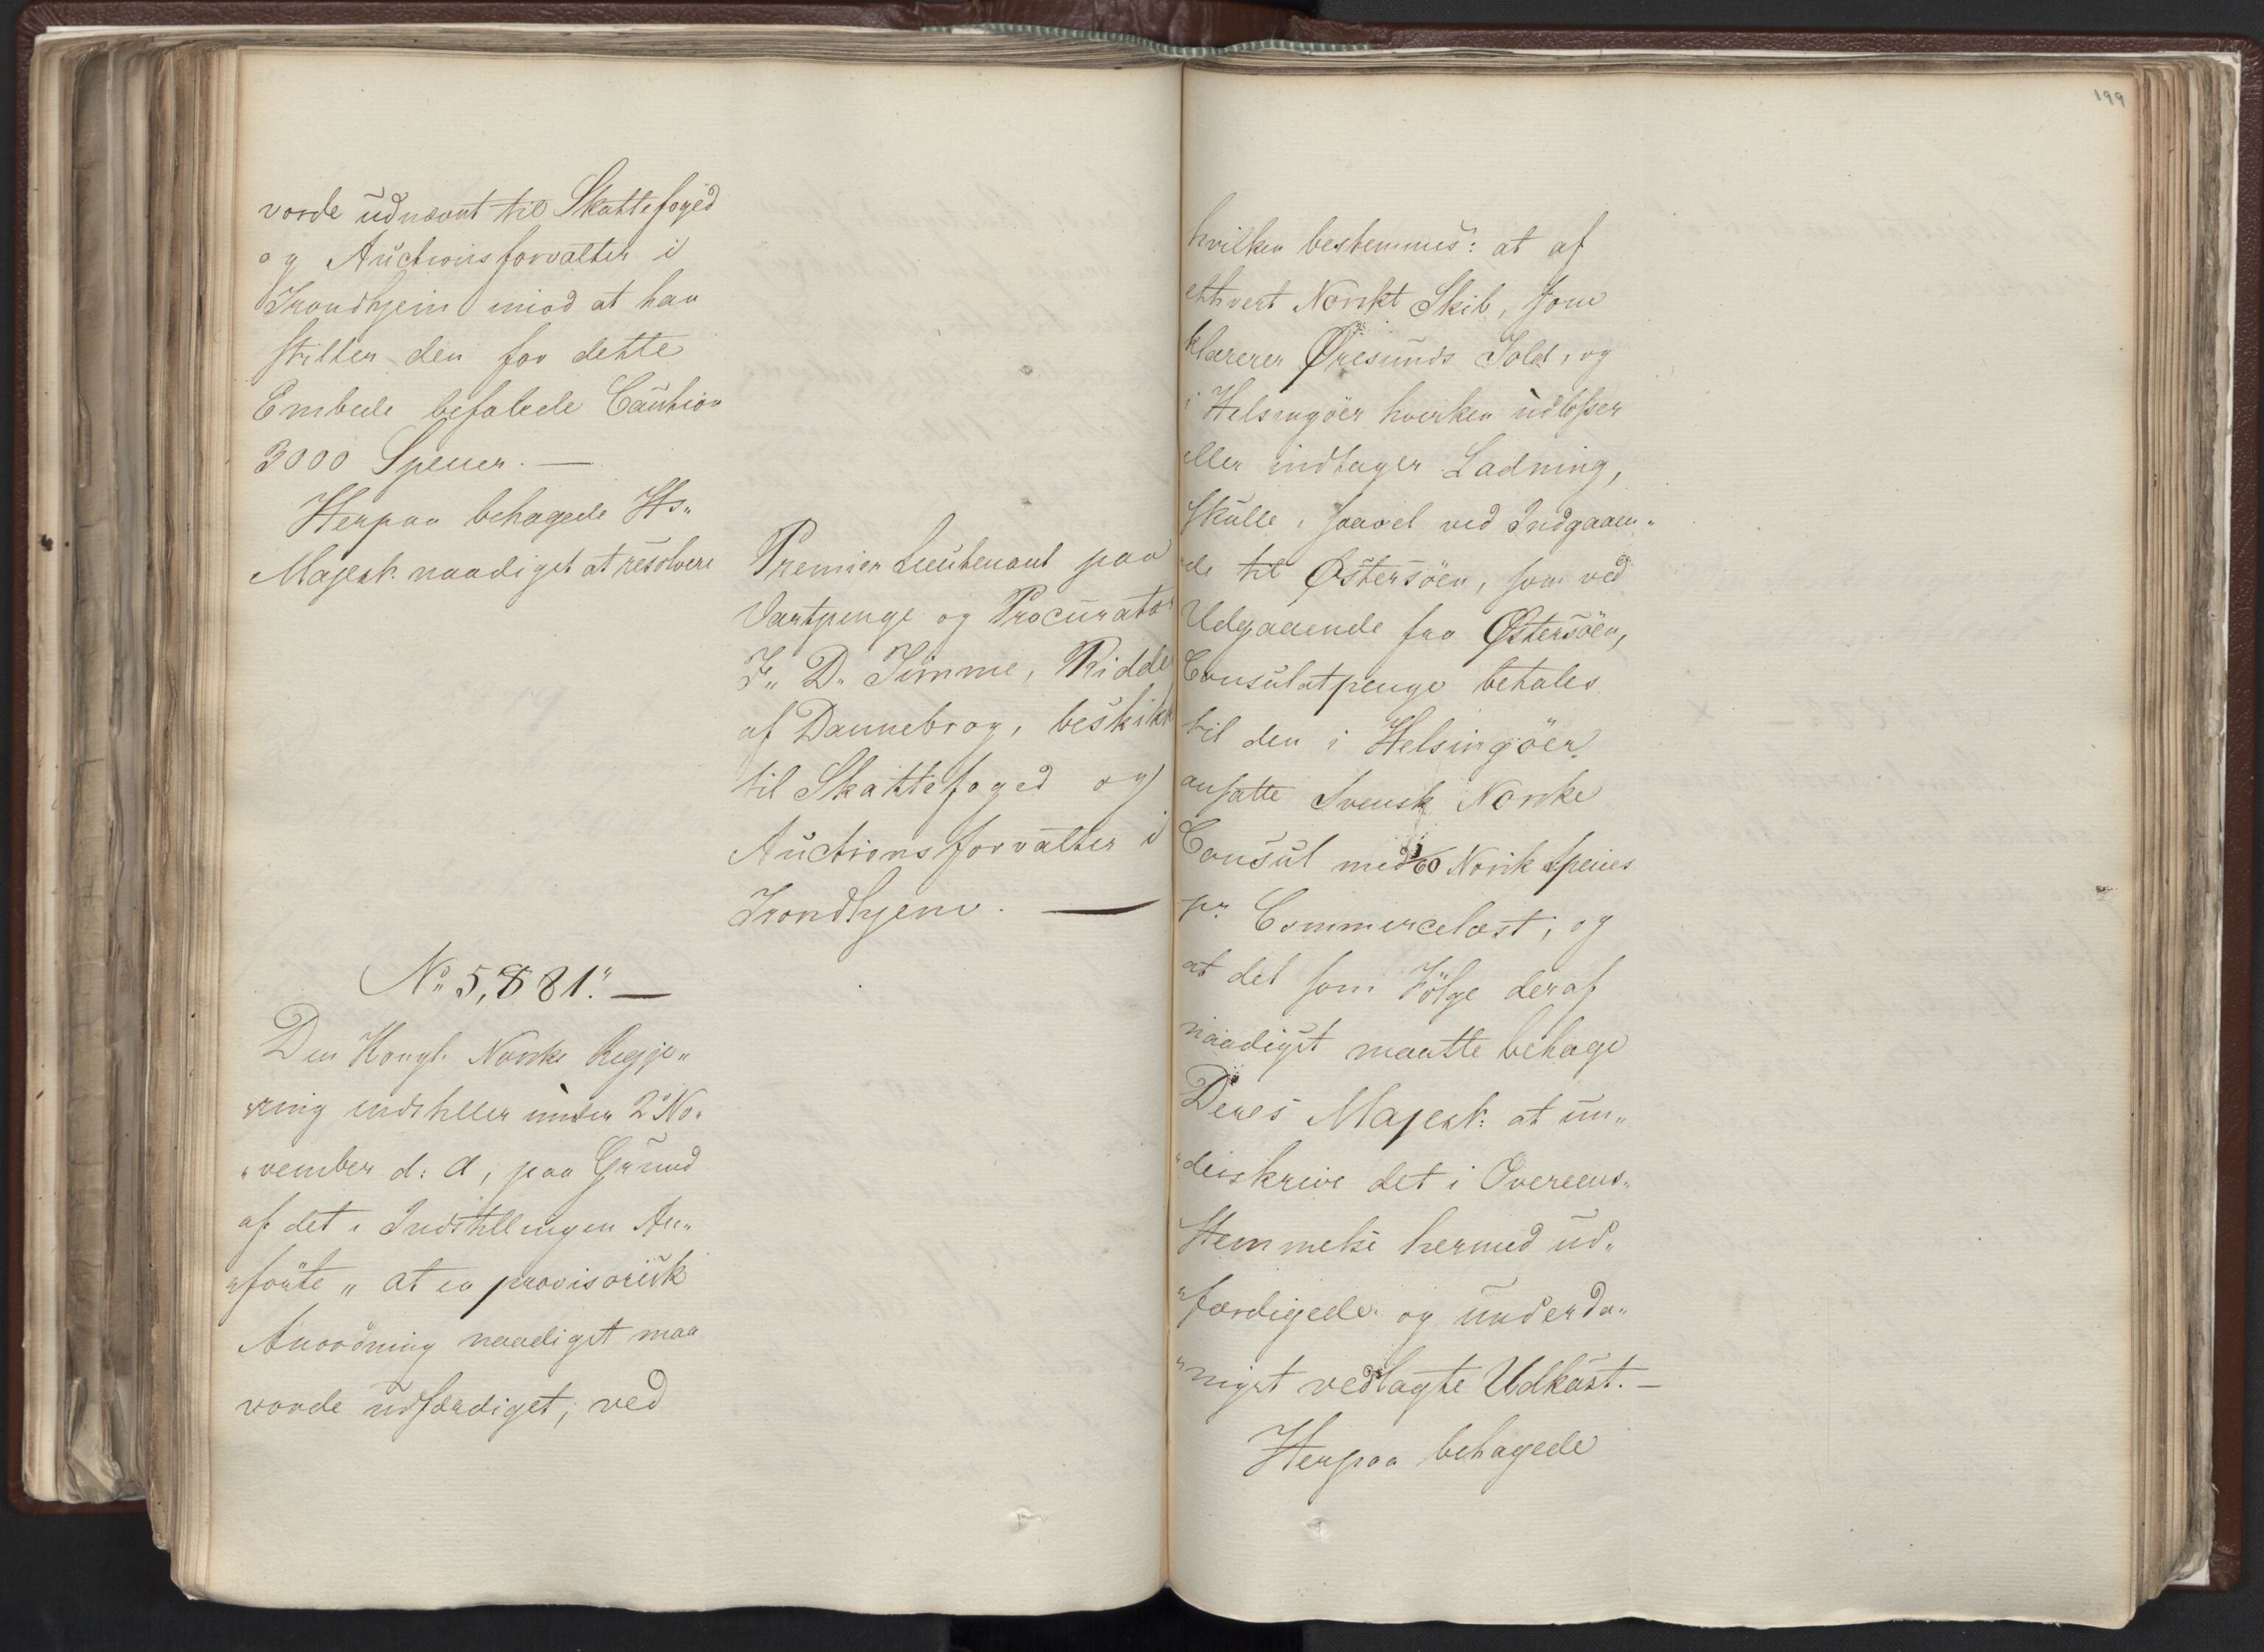 vorde udnævnt til Skattefoged
og Auctionsforvalter i
Trondhjem mod at han
stiller den for dette
Embede befalede Caution
3000 Specier. —
Herpaa behagede Hs„
Majestt. naadigst at resolvere
Premier Lieutenant paa
Vartpenge og Procurator
F„ D„ Timme, Ridder
af Dannebrog, beskikkes
til Skattefoged og
Auctionsforvalter i
Trondhjem. —
No 5,881." —
Den Kongl. Norske Regje„
„ring indstiller under 2 No„
„vember d: A, paa Grund
af det i Indstillingen An„
„förte „ at en provisorisk
Anordning naadigst maa
vorde udfærdiget, ved
199
hvilken bestemmes: at af
ethvert Norskt Skib, som
klarerer Øresunds Told, og
i Helsingöer hverken udlosser
eller indtager Ladning,
skulle, saavel ved Indgaaen„
„de til Østersöen, som ved
Udgaaende fra Østersöen,
Consulatpenge betales
til den i Helsingöer
ansatte Svensk Norske
Consul med 1/60 Norsk Species
pr. Commercelæst, og
at det som Fölge deraf
naadigst maatte behage
Deres Majestt: at un„
„derskrive det i Overeens„
stemmelse hermed ud„
„færdigede og underda„
„nigst vedlagte Udkast. —
Herpaa behagede